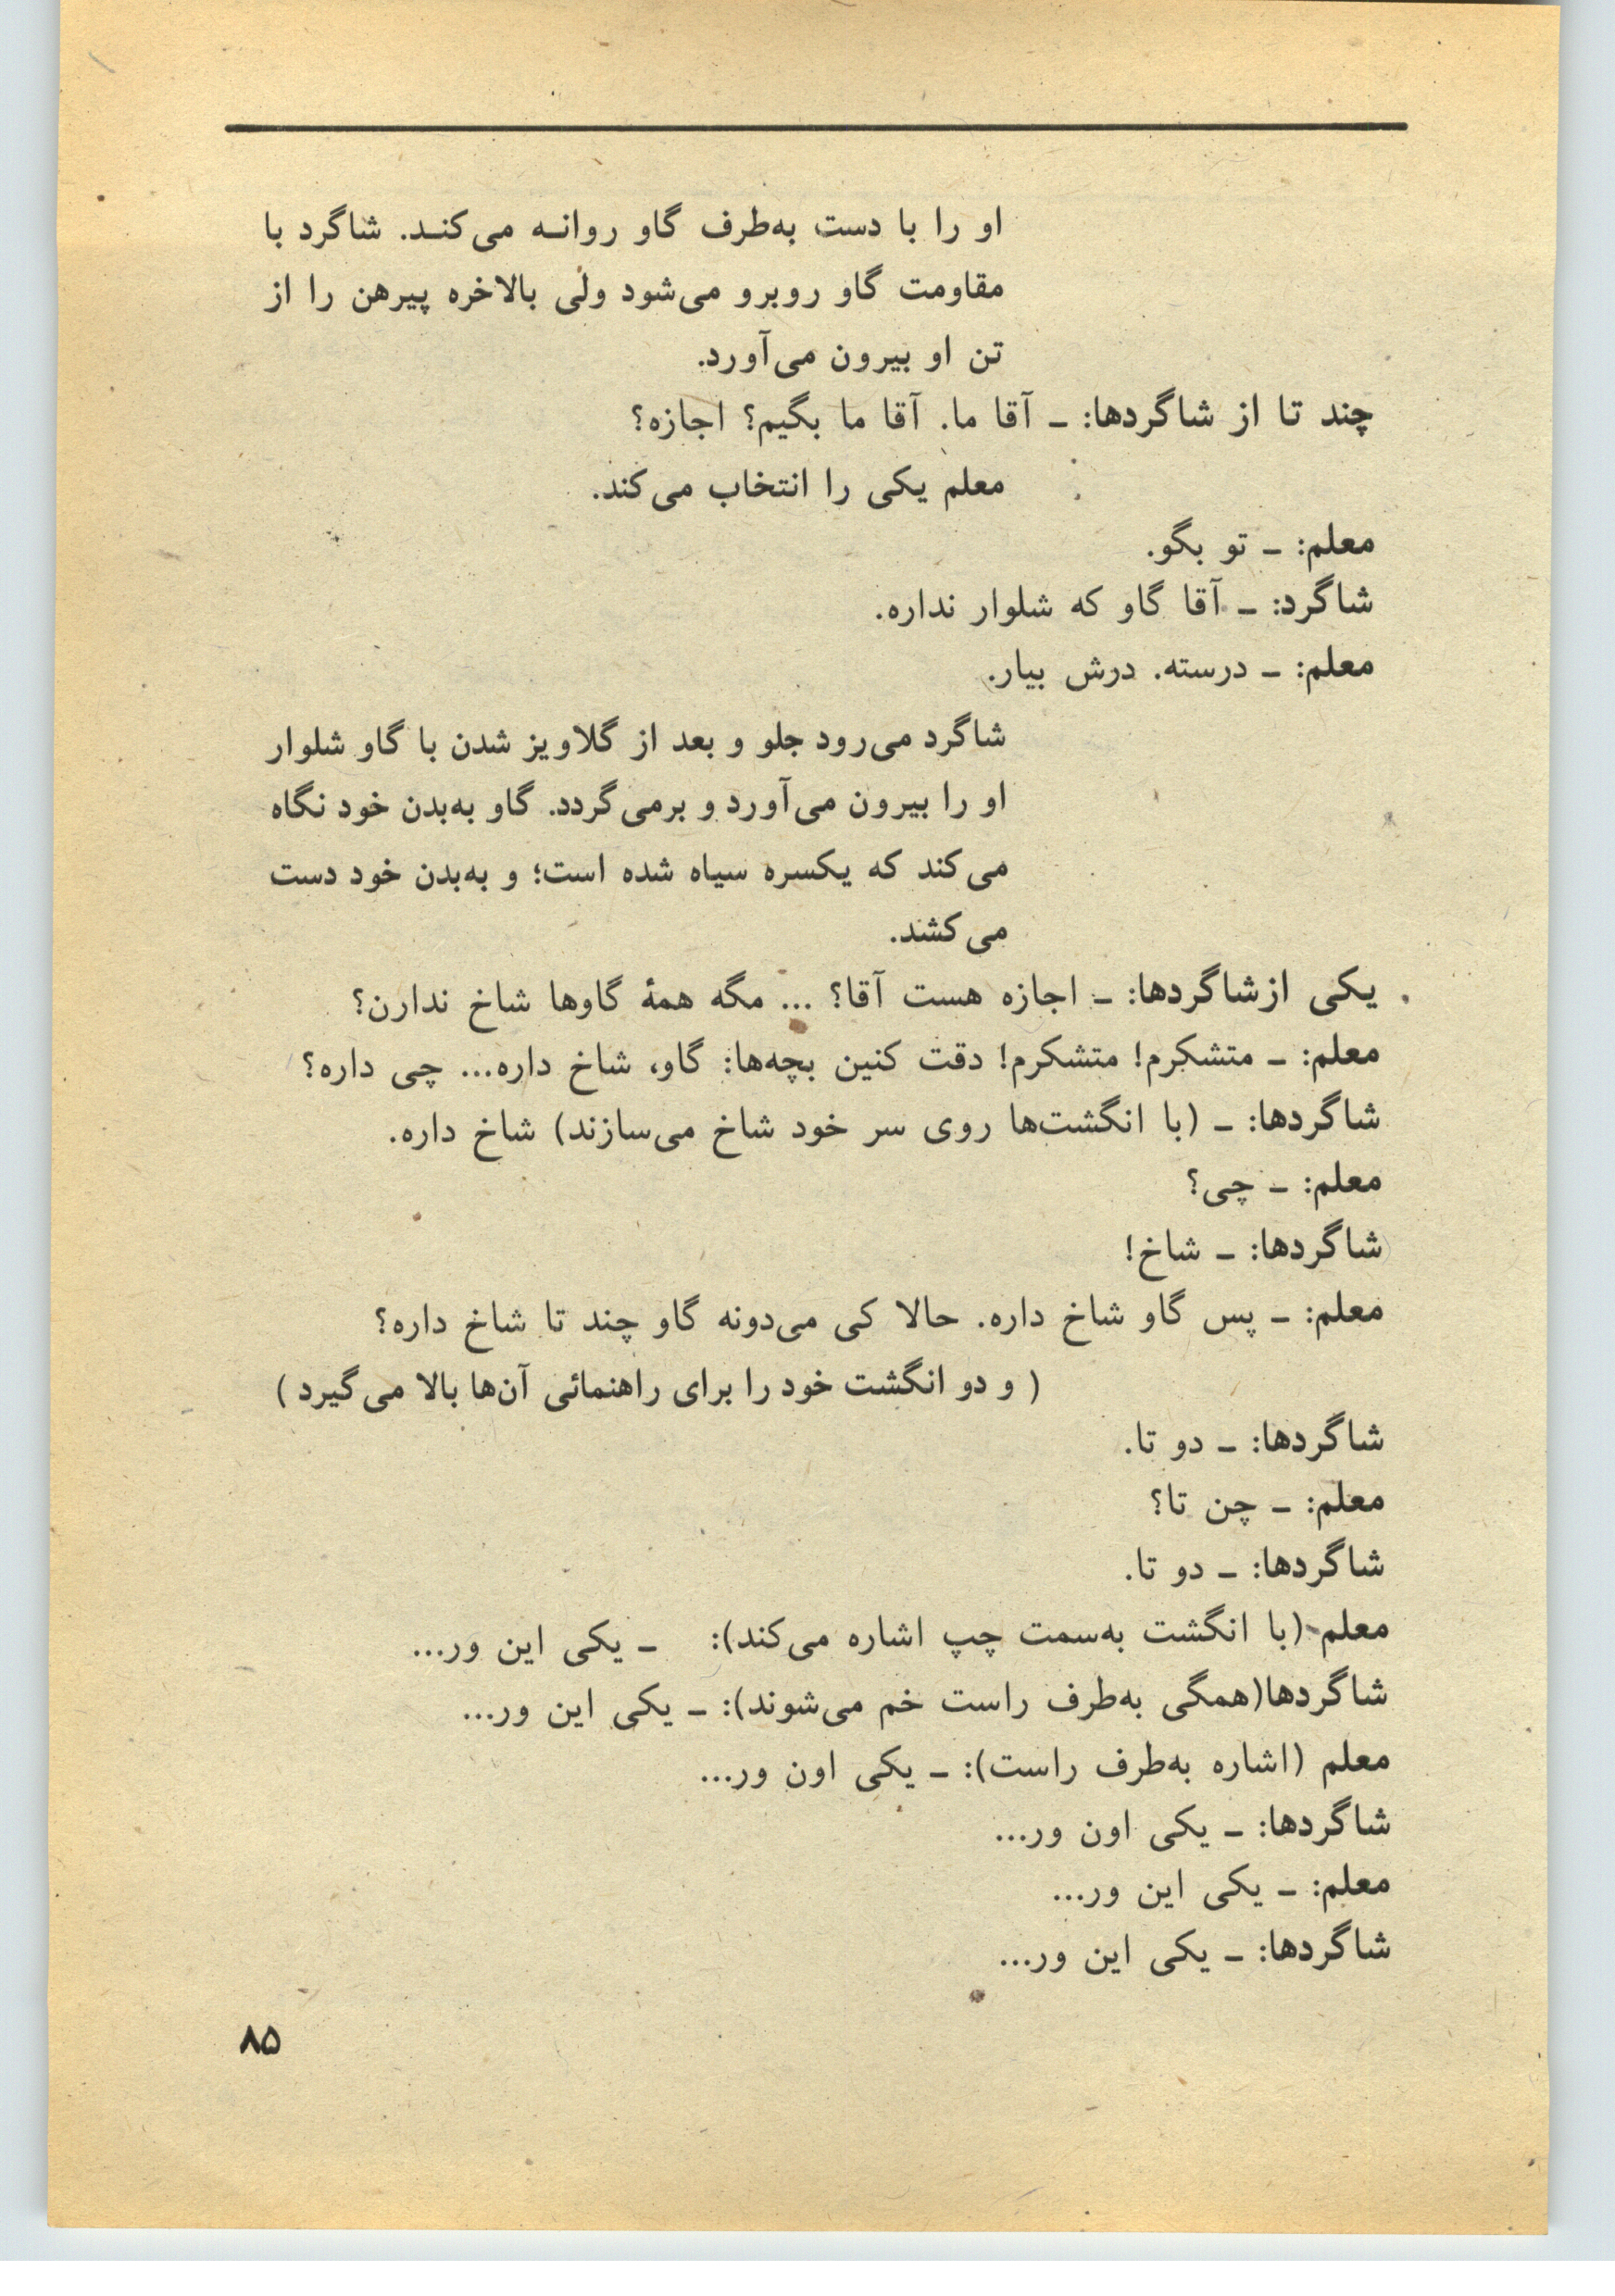 او را با دست به‌طرف گاو روانه می‌کند. شاگرد با
مقاومت گاو روبرو می‌شود ولی بالاخره پیرهن را از
تن او بیرون می‌آورد.
چند تا از شاگردها: ـ آقا ما. آقا ما بگیم؟ اجازه؟
معلم یکی را انتخاب می‌کند.
معلم: ـ تو بگو.
شاگرد: ـ آقا گاو که شلوار نداره.
معلم: ـ درسته. درش بیار.
شاگرد می‌رود جلو و بعد از گلاویز شدن با گاو شلوار
او را بیرون می‌آورد و برمی‌گردد. گاو به‌بدن خود نگاه
می‌کند که یکسره سیاه شده است؛ و به‌بدن خود دست
می‌کشد.
یکی ازشاگردها: ـ اجازه هست آقا؟ ... مگه همهٔ گاوها شاخ ندارن؟
معلم: ـ متشکرم! متشکرم! دقت کنین بچه‌ها: گاو، شاخ داره... چی داره؟
شاگردها: ـ (با انگشت‌ها روی سر خود شاخ می‌سازند) شاخ داره.
معلم: ـ چی؟
شاگردها: ـ شاخ!
معلم: ـ پس گاو شاخ داره. حالا کی می‌دونه گاو چند تا شاخ داره؟
( و دو انگشت خود را برای راهنمائی آن‌ها بالا می‌گیرد )
شاگردها: ـ دو تا.
معلم: ـ چن تا؟
شاگردها: ـ دو تا.
معلم (با انگشت به‌سمت چپ اشاره می‌کند): ـ یکی این ور...
شاگردها(همگی به‌طرف راست خم می‌شوند): ـ یکی این ور...
معلم (اشاره به‌طرف راست): ـ یکی اون ور...
شاگردها: ـ یکی اون ور...
معلم: ـ یکی این ور...
شاگردها: ـ یکی این ور...
۸۵